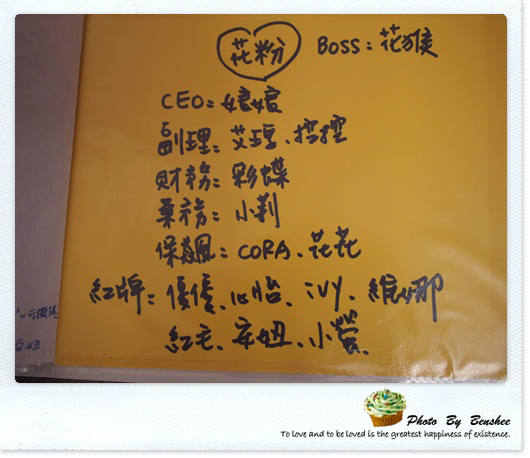 花粉 BOSS：花猴
CEO：娘娘
副理：艾琼、控控
財務：彩蝶
業務：小莉
保飆：CORA、花花
紅牌：優優、心怡、IVY、維娜
紅毛、安妞、小營
Photo By Benshee
To love and to be loved is the greatest happiness of existence.